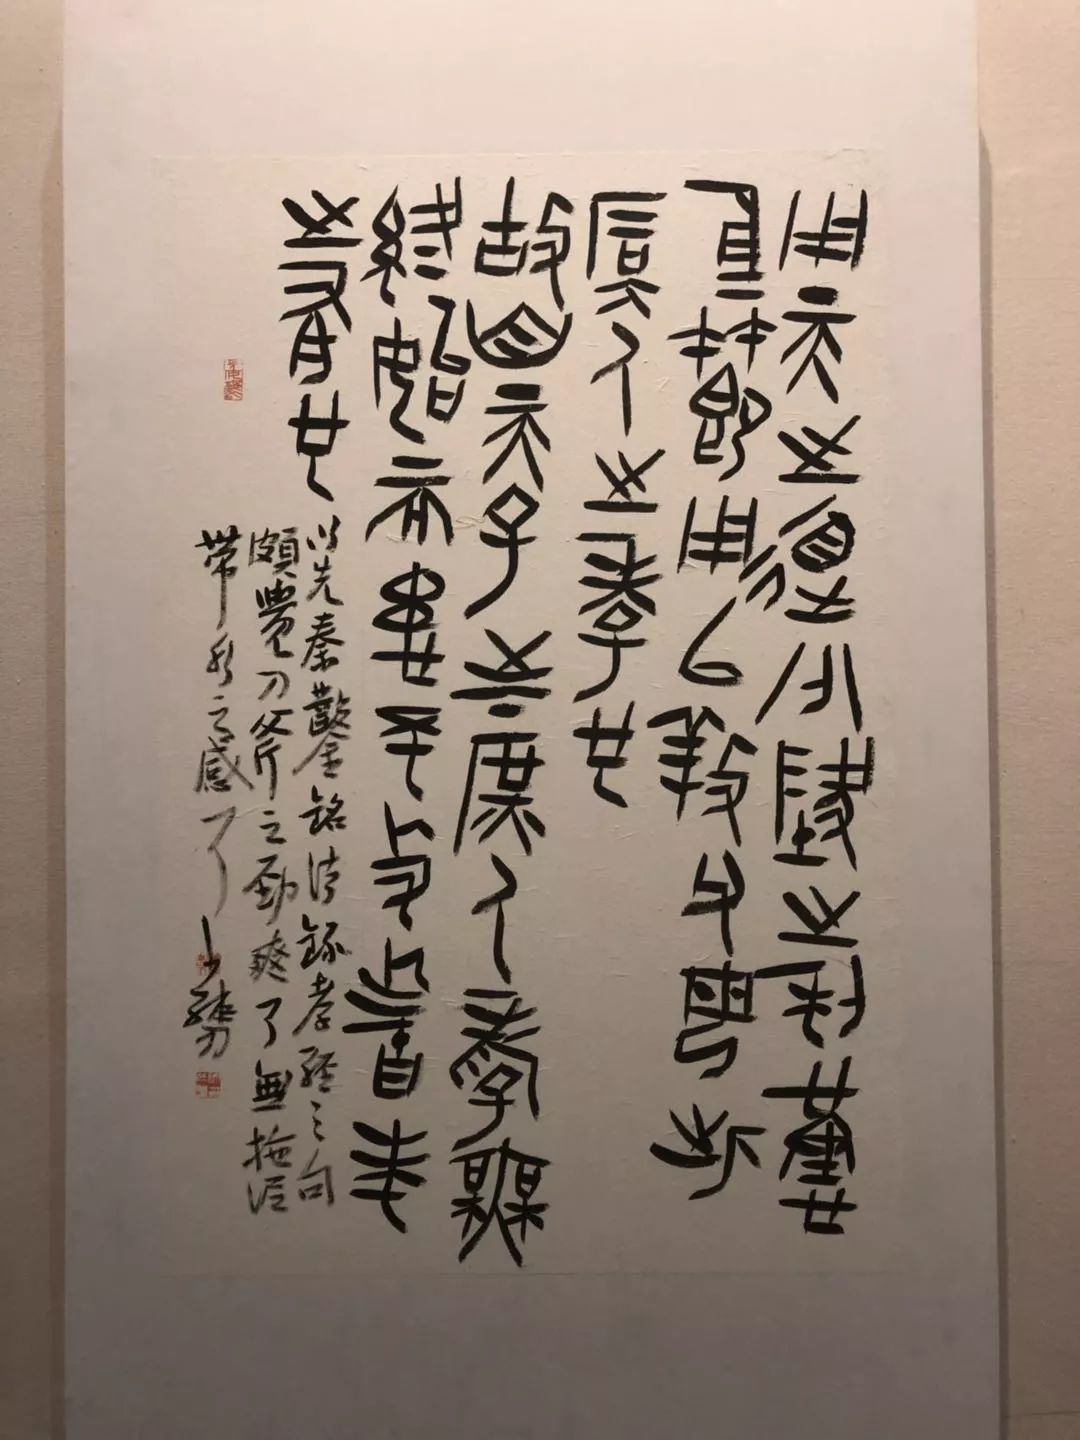 用天之道分地之利謹
身節用以養父母此
庶人之孝也
故自天子 庶人孝無
終始而患不及者未
之有也
以先秦鑿金銘法錄孝經之句
頗覺刀斧之勁爽了無拖泥
帶水之感